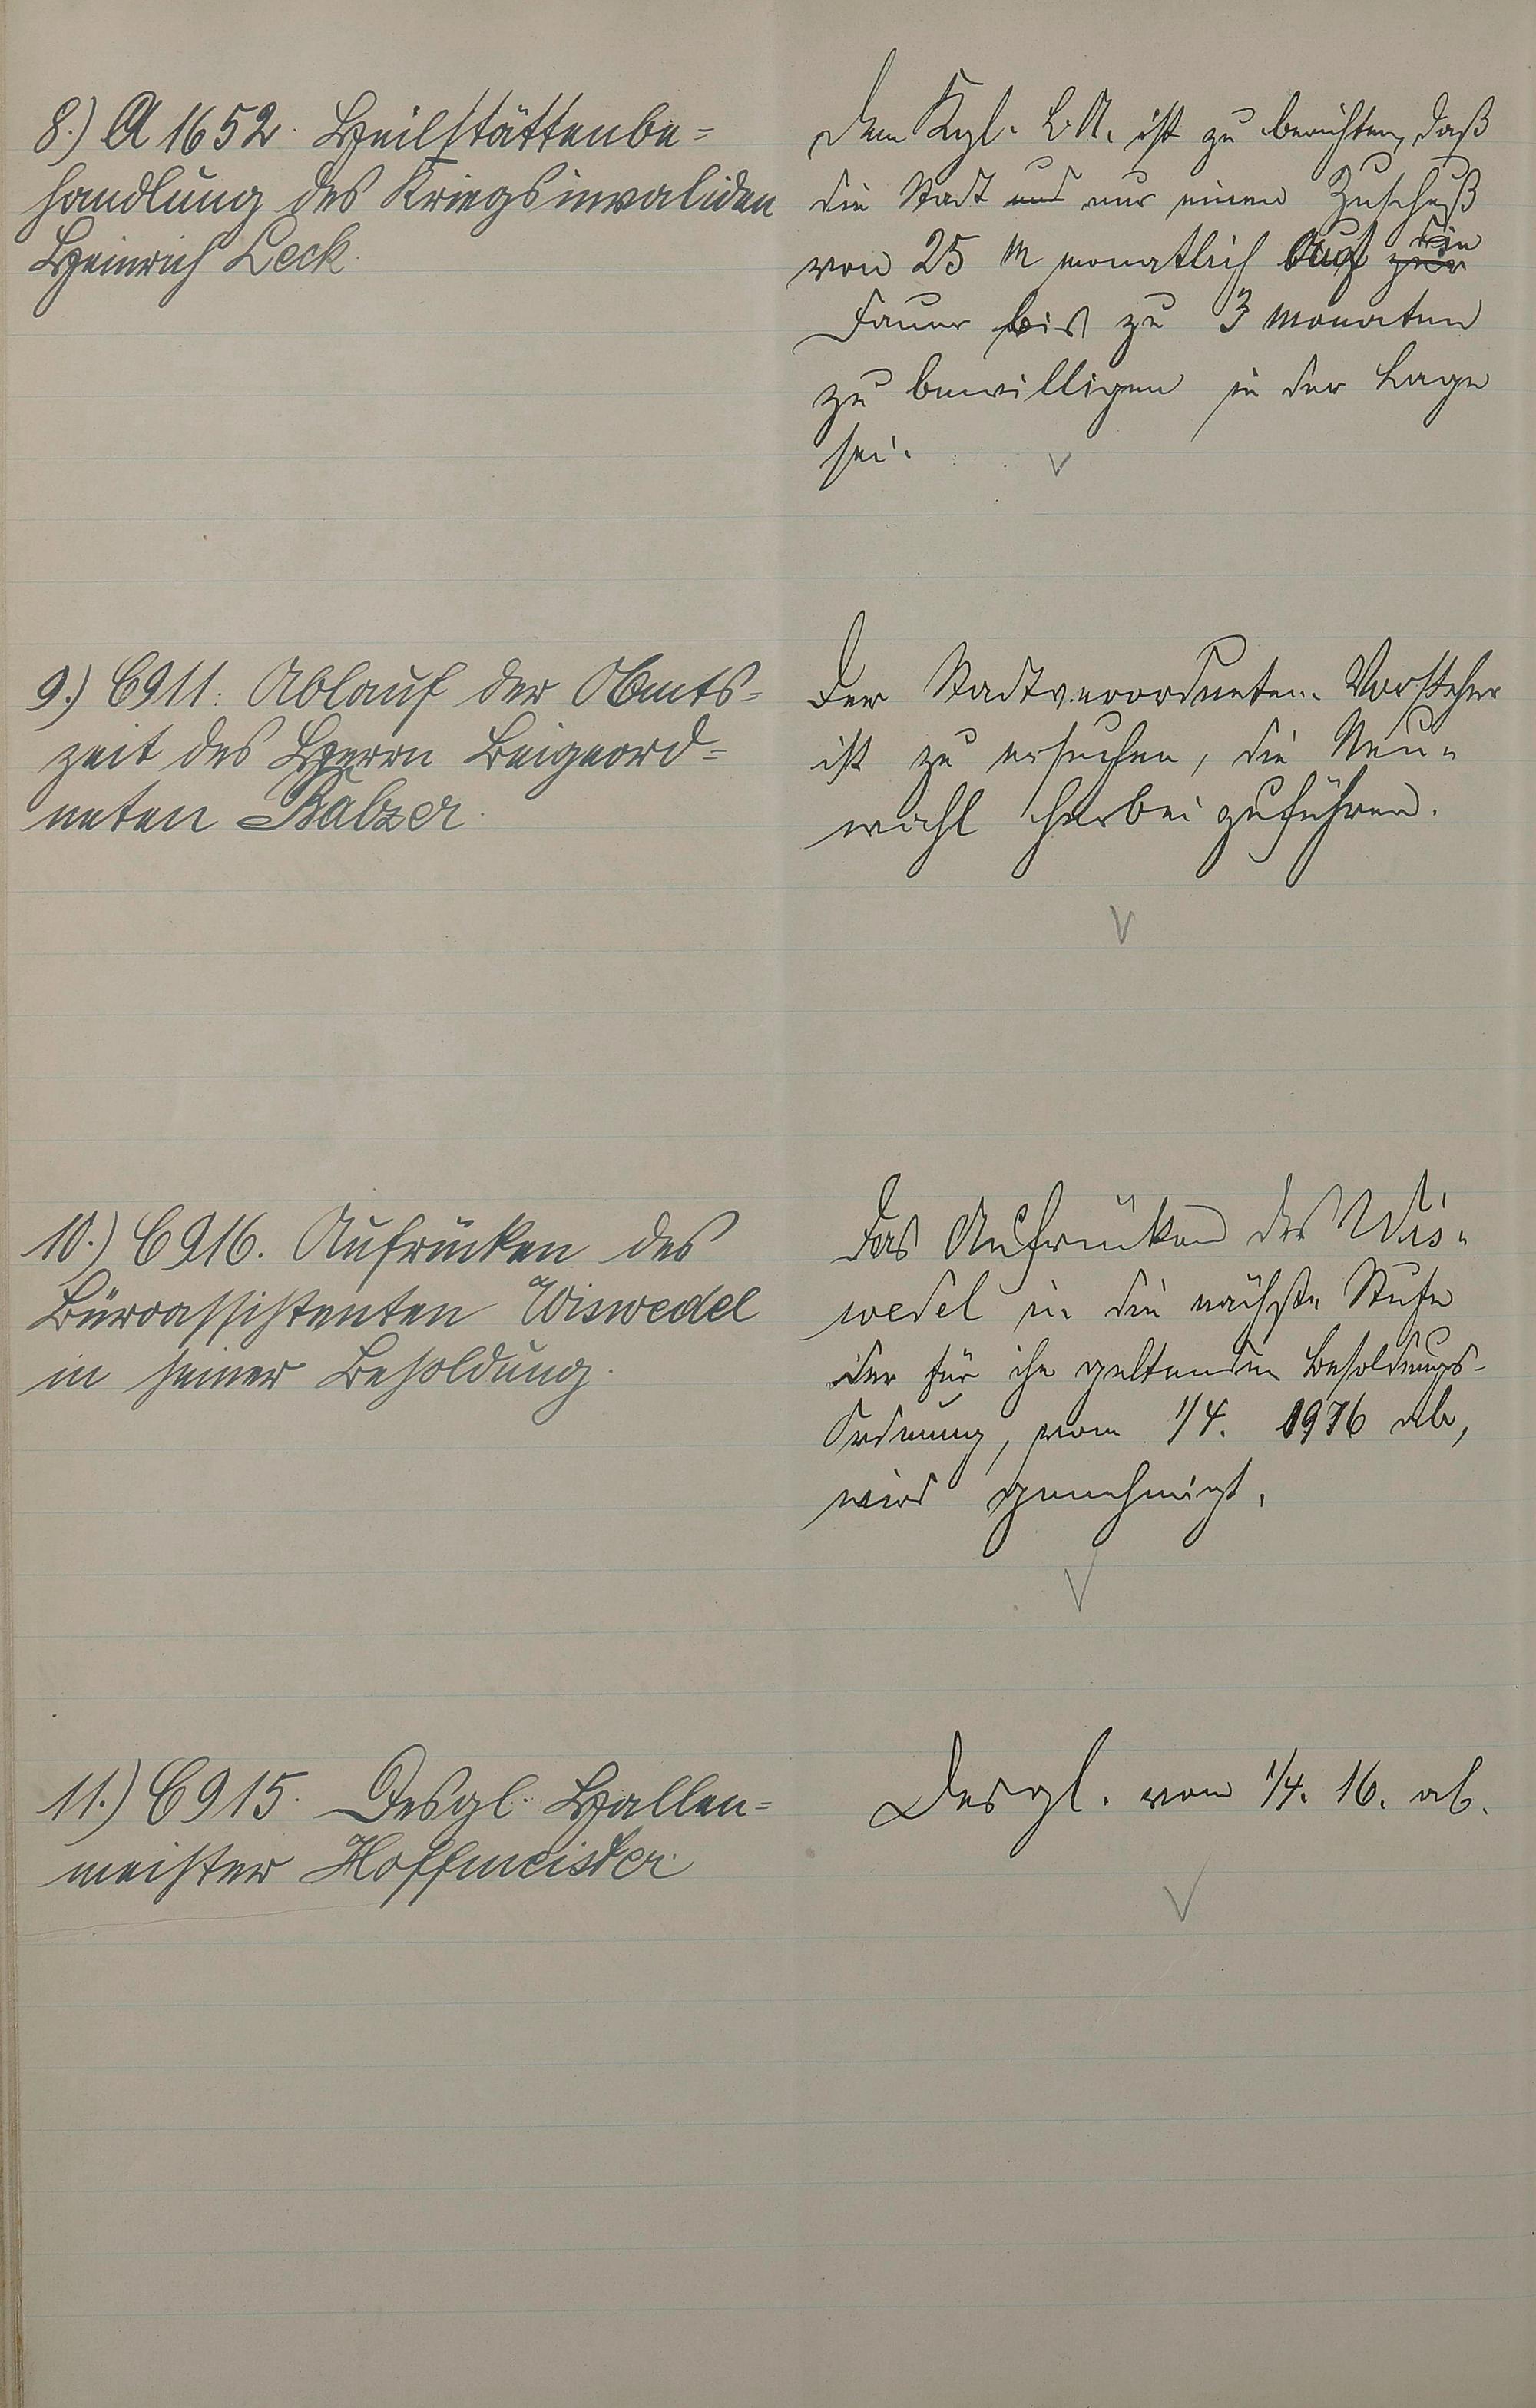 8.) A 1652. Heilstättenbe=
handlung des Kriegsinvaliden
Heinrich Leck.
Dem Kgl. L. A. ist zu berichten, daß
die Stadt und nur einen Zuschuß
von 25 M monatlich auf zur die
Dauer bis zu 3 Monaten
zu bewilligen in der Lage
sei.
9.) C 911. Ablauf der Amts=
zeit des Herrn Beigeord=
neten Balzer.
Der Stadtverordneten-Vorsteher
ist zu ersuchen, die Neu-
wahl herbeizuführen.
10.) C 916. Aufrücken des
Büroassistenten Wiswedel
in seiner Besoldung.
Das Aufrücken des Wis-
wedel in die nächste Stufe
der für ihn geltenden Besoldungs-
Ordnung, vom 1/4. 1916 ab,
wird genehmigt.
11.) C 915. Desgl. Hallen=
meister Hoffmeister.
Desgl. vom 1/4. 16. ab.